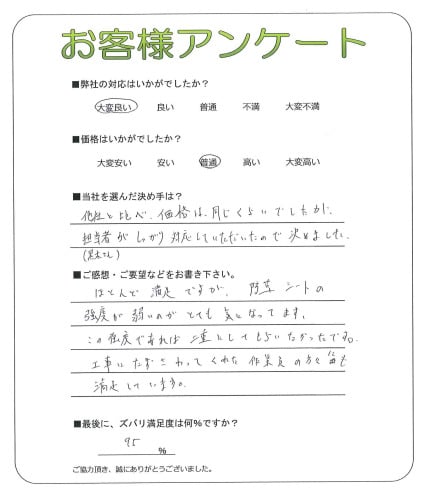 お客様アンケート
■弊社の対応はいかがでしたか？
大変良い 良い 普通 不満 大変不満
■価格はいかがでしたか？
大変安い 安い 普通 高い 大変高い
■当社を選んだ決め手は？
他社と比べ、価格は、同じくらいでしたが、
担当者がしっかり対応していただいたので決めました。
■ご感想・ご要望などをお書き下さい。
ほとんど満足ですが、防草シートの
強度が弱いのがとても気になってます。
この強度であれば二重としてもらいたかったです。
工事にたずさわってくれた作業員の方々
満足しています。
■最後に、ズバリ満足度は何%ですか？
95 %
ご協力頂き、誠にありがとうございました。